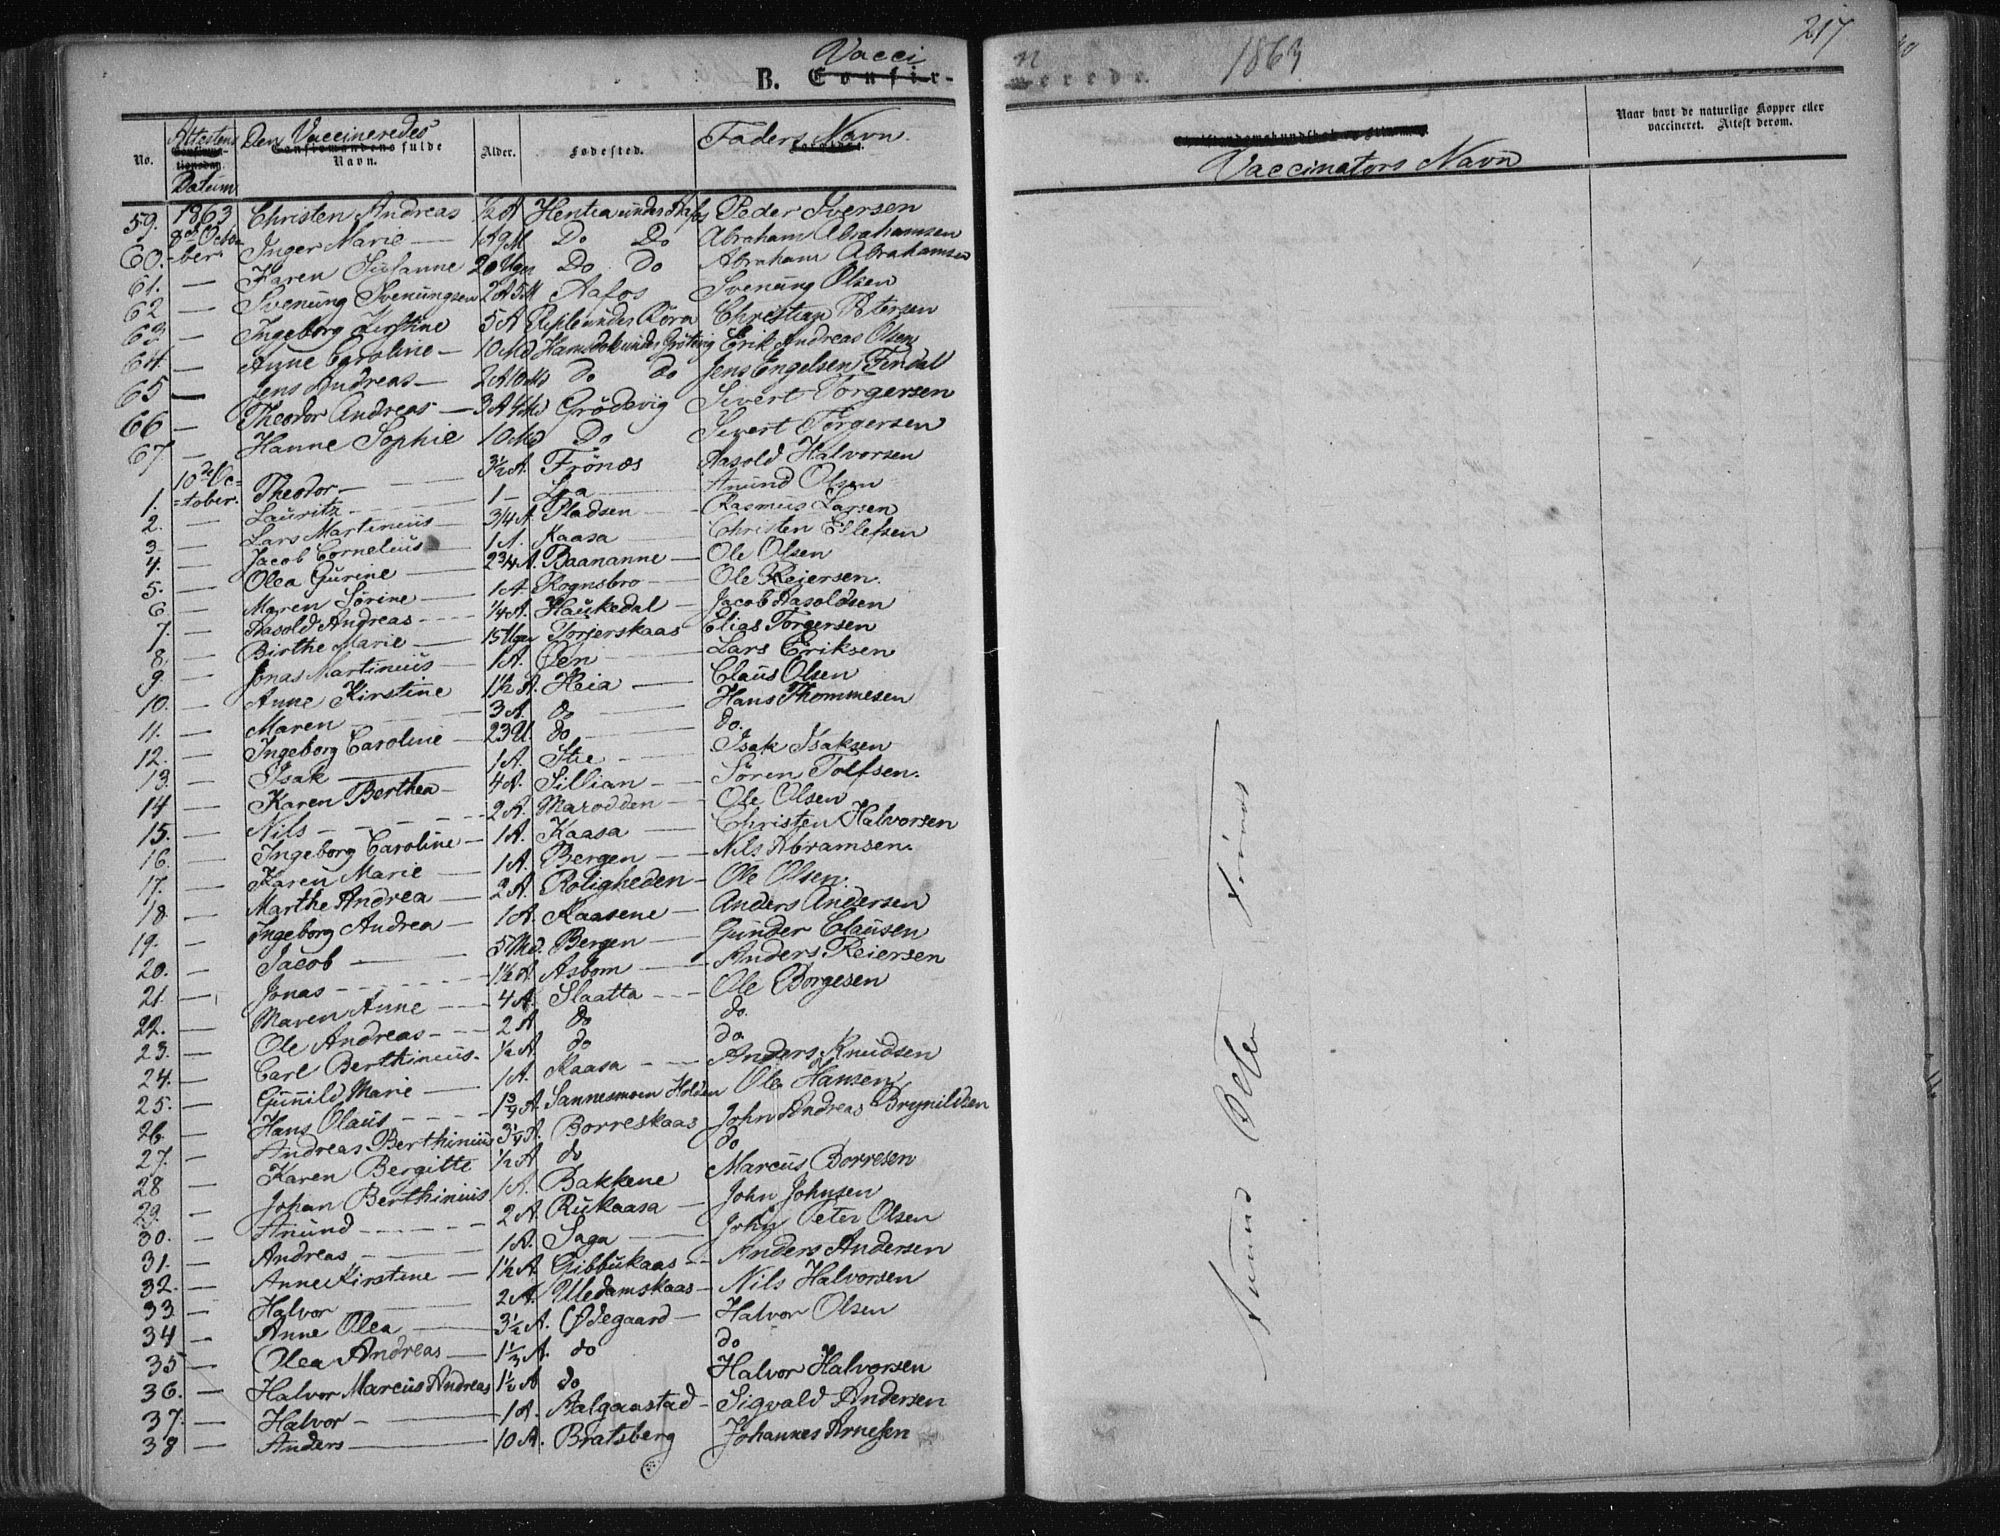 Vacci
B. Confir-
No.
Attestens
Datum
Den Vaccineredes
Confirmandens fulde
Navn.
Alder.
Fødested.
Faders Navn
59. 1863 Christen Andreas ½ A Hentea under Aafos Peder Iversen
60. 8de Octo- Inger Marie 1 A 9 M Do Do Abraham Abrahamsen
61. -ber. Karen Susanne 20 Uger Do Do Abraham Abrahamsen
62 — Svenung Svenungsen 2 A 5 M Aafos Svenung Olsen
63 — Ingeborg Kirstine 5 A under Christian Petersen
64 — Anne Caroline — 10 Md under Erik Andreas Olsen
65 — Jens Andreas — 2 A 10 Mo do do Jens Engelsen Findal
66 — Theodor Andreas — 3 A 4 Md Grödevig Sivert Torgersen
67 — Hanne Sophie 10 Md Do Sivert Torgersen
1. 10de Oc=tober. Theodor — 3½ A. Frönæs Aasold Halvorsen
2. — Lauritz — 1 — Lea — Anund Olsen
3 — Lars Martinius — 3/4 A. Pladsen — Rasmus Larsen
4. — Jacob Cornelius 1 A. Kaasa — Christen Ellefsen
5. — Olea Gurine — 2¾ A. Baananne — Ole Olsen
6. — Maren Sörine — 1 A Rognsbro — Ole Reiersen.
7. — Aasold Andreas — ¼ A. Haukedal — Jacob Aasoldsen
8. — Birthe Marie — 15 Uger Torjerskaas Elias Torgersen
9. — Jonas Martinius — 1 A. Øen — Lars Eriksen
10. — Anne Kirstine 1½ A. Heia — Claus Olsen
11. — Maren — 3 A. do — Hans Thommesen
12. — Ingeborg Caroline — 23 U. do — do.
13. — Isak — 1 A. Stie — Isak Isaksen
14 — Karen Berthea — 4 A. Sillian — Sören Tolfsen.
15. — Nils — 2 A. Marodden — Ole Olsen
16. — Ingeborg Caroline — 1 A. Kaasa — Christen Halvorsen
17. — Karen Marie — 1 A. Bergen — Nils Abramsen.
18. — Marthe Andrea — 2 A. Roligheden — Ole Olsen.
19. — Ingeborg Andrea — 1 A. Kaasene — Anders Andersen
20. — Jacob — 5 Md. Bergen — Gunder Clausen
21. — Jonas — 1½ A. Asbom — Anders Reiersen
22. — Maren Anne — 4 A. Slaatta — Ole Borgesen
23. — Ole Andreas — 2 A do do.
24. — Carl Berthinius. ½ A. do do
25. — Gunild Marie — 1 A. Kaasa — Anders Knudsen
26. — Hans Olaus — 1¾ A Sannesmoen Holden Ole Hansen
27. — Andreas Berthinius 3¼ A. Borreskaas John Andreas Brynildsen
28 — Karen Bergitte ½ A do do
29. — Johan Berthinius 1 A. Bakkene Marcus Borresen
30. — Anund — 2 A Rukaasa — John Johnsen
31. — Andreas — 1 A. Saga — John Peter Olsen
32. — Anne Kirstine — 1½ A. Gibbukaas — Anders Andersen
33 — Halvor 2 A. Uledamskaas — Nils Halvorsen
34 — Anne Olea — 3½ A. Ødegaard — Halvor Olsen
35 — Olea Andreas — 1⅓ A. do do
36. — Halvor Marcus Andreas 1½ A do Halvor Halvorsen
37. — Halvor — 1 A. Aalgaastad — Sigvald Andersen
38 — Anders — 10 A. Bratsberg Johannes Arnesen
n
erede.
1863
217
Vaccinators Navn
Naar havt de naturlige Kopper eller
vaccineret. Attest derom.
Anund Peter Frönæs